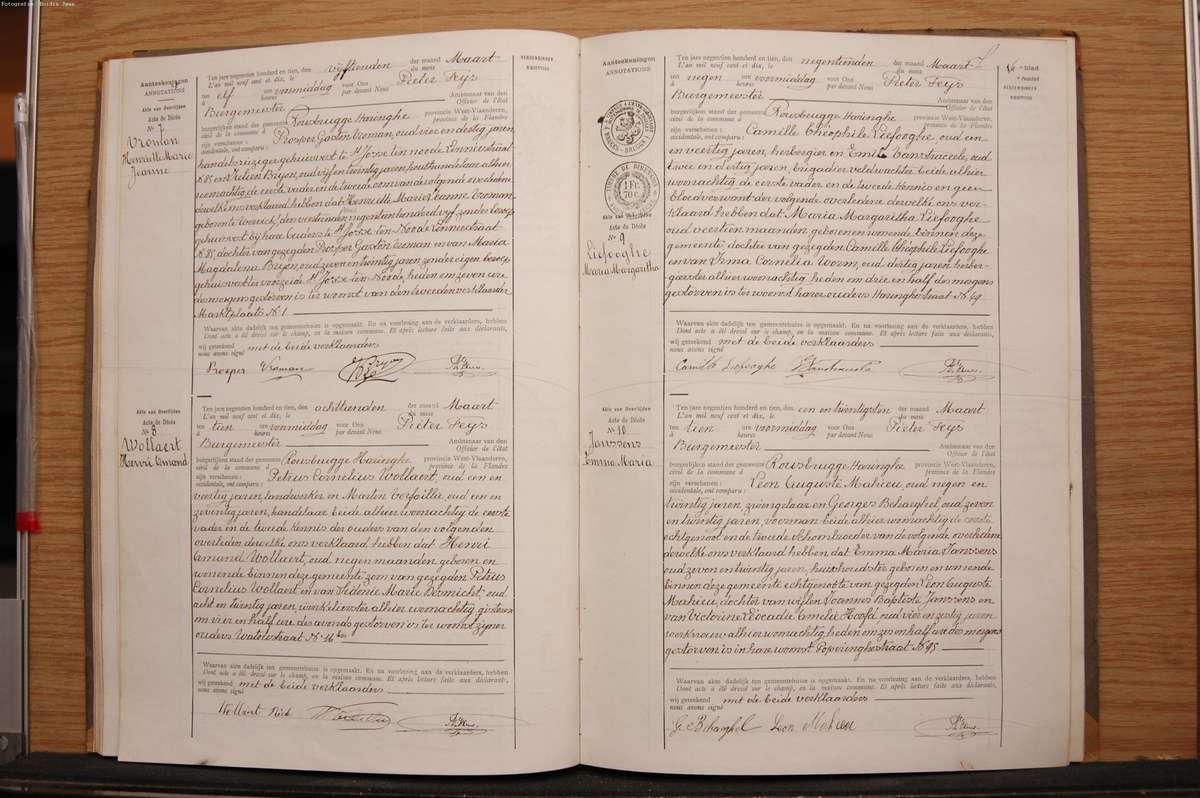 Fotografie: Boidin Jean
Aanteekeningen
ANNOTATIONS
Akte van Overlijden
Acte de Décès
Nr 7
Vroman
Henriette Marie
Jeanne
Ten jare negentien honderd en tien, den vijftienden der maand Maart
L'an mil neuf cent et dix, le du mois
ten elf uren voormiddag voor Ons Pieter Feys
à heures par devant Nous
Burgemeester Ambtenaar van den
Officier de l'état
burgerlijken stand der gemeente Rousbrugge Haringhe provincie West-Vlaanderen,
civil de la commune d province de la Flandre
zijn verschenen : Prosper Gaston Vroman, oud vier en dertig jaren,
occidentale, ont comparu :
handelsreiziger gehuisvest te St Josse ten noode Linniestraat
Nr 85 en Julien Bryon, oud vijf en twintig jaren, houthandelaar alhier
woonachtig, de eerste vader en de tweede oom van de volgende overledene
dewelke ons verklaard hebben dat Henriette Marie Jeanne Vroman
geboren te Wervick, den veertienden negentienhonderd vijf, zonder beroep
gehuisvest bij hare Ouders te St Josse ten Noode Linniestraat
Nr 85, dochter van gezegden Prosper Gaston Vroman en van Maria
Magdalena Bryon, oud zeven en twintig jaren zonder eigen beroep
gehuisvest te voorzeide St Josse ten Noode, heden om zeven ure
des morgens gestorven is ter woonst van den tweeden verklaarder
Marktplaats Nr 1
Waarvan akte dadelijk ten gemeentehuize is opgemaakt. En na voorlezing aan de verklaarders, hebben
Dont acte a été dressé sur le champ, en la maison commune. Et après lecture faite aux déclarants,
wij geteekend met de beide verklaarders
nous avons signé
Prosper Vroman
Akte van Overlijden
Acte de Décès
Nr 8
Wollaert
Henri Amond
Ten jare negentien honderd en tien, den achttienden der maand Maart
L'an mil neuf cent et dix, le du mois
ten tien uren voormiddag voor Ons Pieter Feys
à heures par devant Nous
Burgemeester Ambtenaar van den
Officier de l'état
burgerlijken stand der gemeente Rousbrugge Haringhe provincie West-Vlaanderen,
civil de la commune d province de la Flandre
zijn verschenen : Petrus Cornelius Wollaert, oud een en
occidentale, ont comparu :
veertig jaren, landwerker en Martin Verfaillie, oud een en
zeventig jaren, handelaar beide alhier woonachtig de eerste
vader en de tweede kennis der ouders van den volgenden
overleden dewelke ons verklaard hebben dat Henri
Amand Wollaert, oud negen maanden geboren en
wonende binnen deze gemeente zoon van gezegden Petrus
Cornelius Wollaert en van Sidonie Marie Desmicht, oud
acht en twintig jaren, winkelierster alhier woonachtig, gisteren
om vier en half ure des avonds gestorven is ter woonst zijner
ouders Watoustraat Nr 16 bis
Waarvan akte dadelijk ten gemeentehuize is opgemaakt. En na voorlezing aan de verklaarders, hebben
Dont acte a été dressé sur le champ, en la maison commune. Et après lecture faite aux déclarants,
wij geteekend met de beide verklaarders
nous avons signé
VERZENDINGEN
RENVOIS
Aanteekeningen
ANNOTATIONS
TIMBRE DE DIMENSION
1 FR.
70 C.
Akte van Overlijden
Acte de Décès
Nr 9
Liefooghe
Maria Margaritha
Ten jare negentien honderd en tien, den negentienden der maand Maart
L'an mil neuf cent et dix, le du mois
ten negen uren voormiddag voor Ons Pieter Feys
à heures par devant Nous
Burgemeester Ambtenaar van den
Officier de l'état
burgerlijken stand der gemeente Rousbrugge Haringhe provincie West-Vlaanderen,
civil de la commune d province de la Flandre
zijn verschenen : Camille Théophile Liefooghe, oud een
occidentale, ont comparu :
en veertig jaren, herbergier en Emile Vanstraceele, oud
twee en dertig jaren, brigadier veldwachter beide alhier
woonachtig de eerste vader en de tweede kennis en geen
bloedverwant der volgende overledene dewelke ons ver-
klaard hebben dat Maria Margaritha Liefooghe
oud veertien maanden, geboren en wonende binnen deze
gemeente, dochter van gezegden Camille Théophile Liefooghe
en van Irma Cornelia Worm, oud dertig jaren, herber-
gierster alhier woonachtig, heden om drie en half des morgens
gestorven is ter woonst harer ouders Haringhestraat Nr 49
Waarvan akte dadelijk ten gemeentehuize is opgemaakt. En na voorlezing aan de verklaarders, hebben
Dont acte a été dressé sur le champ, en la maison commune. Et après lecture faite aux déclarants,
wij geteekend met de beide verklaarders
nous avons signé
Camille Liefooghe
Akte van Overlijden
Acte de Décès
Nr 10
Janssens
Emma Maria
Ten jare negentien honderd en tien, den een en twintigsten der maand Maart
L'an mil neuf cent et dix, le du mois
ten tien uren voormiddag voor Ons Pieter Feys
à heures par devant Nous
Burgemeester Ambtenaar van den
Officier de l'état
burgerlijken stand der gemeente Rousbrugge Haringhe provincie West-Vlaanderen,
civil de la commune d province de la Flandre
zijn verschenen : Leon Auguste Mahieu, oud negen en
occidentale, ont comparu :
twintig jaren, zwingelaar en Georges Behaeghel, oud zeven
en twintig jaren, voerman beide alhier woonachtig de eerste
echtgenoot en de tweede schoonbroeder van de volgende overledene
dewelke ons verklaard hebben dat Emma Maria Janssens
oud zeven en twintig jaren, huishoudster geboren en wonende
binnen deze gemeente echtgenoote van gezegden Leon Auguste
Mahieu, dochter van wijlen Joannes Baptiste Janssens en
van Victorine Léocadie Emelie Hoofd, oud vier en zestig jaren
werkvrouw alhier woonachtig, heden om zes en half ure des morgens
gestorven is in hare woonst Poperinghestraat Nr 95
Waarvan akte dadelijk ten gemeentehuize is opgemaakt. En na voorlezing aan de verklaarders, hebben
Dont acte a été dressé sur le champ, en la maison commune. Et après lecture faite aux déclarants,
wij geteekend met de beide verklaarders
nous avons signé
Leon Mahieu
VERZENDINGEN
RENVOIS